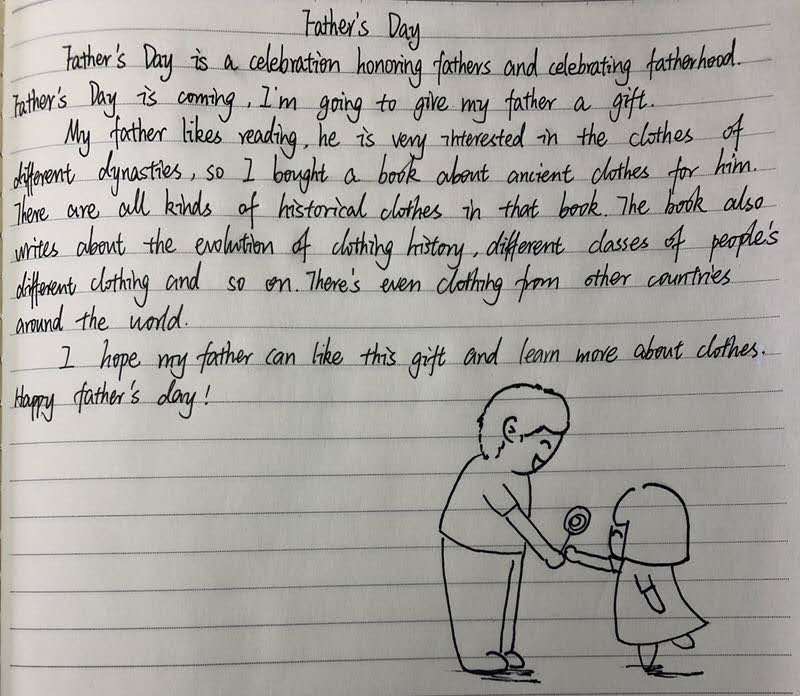 Father's Day
Father's Day is a celebration honoring fathers and celebrating fatherhood.
Father's Day is coming, I'm going to give my father a gift.
My father likes reading, he is very interested in the clothes of
different dynasties, so I bought a book about ancient clothes for him.
There are all kinds of historical clothes in that book. The book also
writes about the evolution of clothing history, different classes of people's
different clothing and so on. There's even clothing from other countries
around the world.
I hope my father can like this gift and learn more about clothes.
Happy father's day!